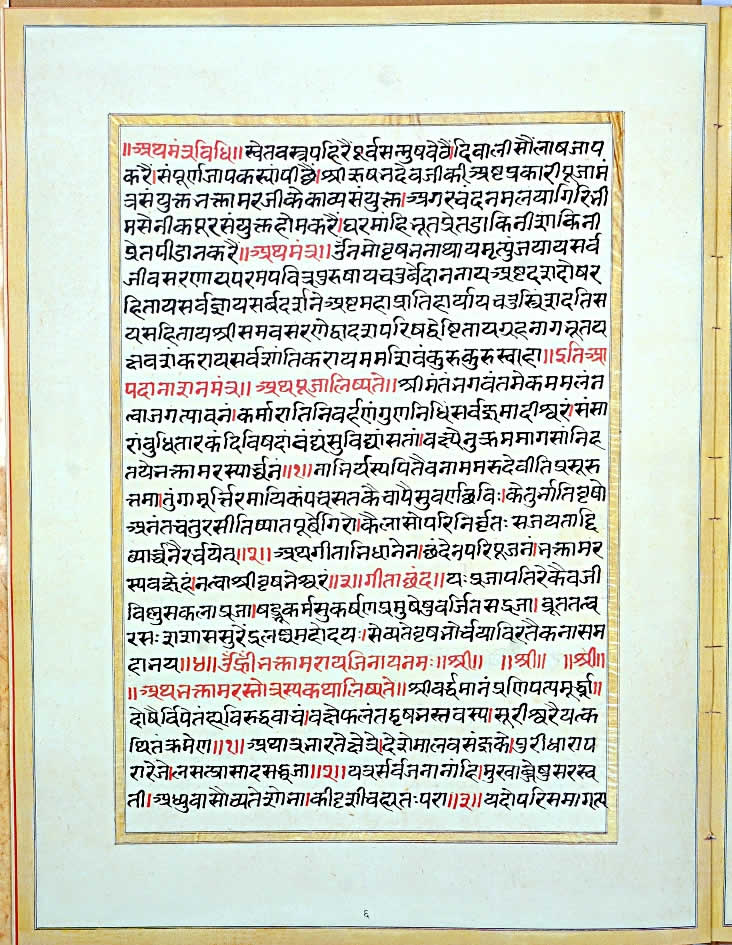 ॥अथमंत्रविधि॥ स्वेतवस्त्रपहिरैपूर्वसन्मुषबैठै।दिवालीसौंलाषजाप
करै।संपूर्णजापकस्यांपीछै।श्रीऋषनदेवजीकीअष्टप्रकारीपूजामं
त्रसंयुक्तनक्तामरजीकेकाव्यसंयुक्त।अगरचंदनमलयागिरिनी
मसेनीकपूरसंयुक्तहोमकरै।घरमांहिनूतप्रेतडाकिनीशाकिनी
प्रेतपीडानकरै॥अथमंत्र॥उँनमोवृषननाथायमृत्युंजयायसर्व
जीवसरणायपरमपवित्रपुरुषायचतुर्वेदाननायअष्टादशदोषर
हितायसर्वज्ञायसर्वदर्शिनेअष्टमहाप्रातिहार्यायचतुस्त्रिंशदतिस
यसहितायश्रीसमवसरणेद्वादशपरिषद्वेष्टितायग्रहनागनूतय
क्षवशंकरायसर्वशांतिकरायममशिवंकुरुकुरुस्वाहा॥इतिआ
पदानाशनमंत्र॥ अथपूजालिष्यते॥श्रीमंतंनगवंतमेकममलंन
त्वाजगत्पावनं।कर्मारातिनिवर्हणंगुणनिधिंसर्वज्ञमादीश्वरं।संसा
रांबुधितारकंदिविषदांवंद्यंसुविद्यासतां।वक्ष्येनुक्रममागसांनिह
तयेनक्तामरस्यार्च्चनं॥१॥नानिर्यस्यपितैवनाममरुदेवीतिप्रसूरु
त्तमा।तुंगामूर्त्तिरमायिकंपंचसतकैचापैसुवर्णछविः।केतुर्नातिवृषो
अनंतचतुरसीतिष्यातपूर्वैगिरौ।कैलासोपरिनिर्वृतःसजयताद्दि
व्यार्च्चनैरर्चयेत्॥२॥ अथगीतानिधानेन।छंदेनपरिपूजनं।नक्तामर
स्यवक्षेदं।नत्वाश्रीवृषनेश्वरं॥३॥गीताछंद॥यःप्रजापतिरेकैवजी
विछुसकलाप्रजा।षड्कर्मसुकर्षणप्रमुषेषुवर्जितसद्रजा।
महोदयः।सेव्यतेवृषनोर्चयाविरतैकनासम
हानय॥४॥उँह्रींनक्तामरायजिनायनमः॥श्री॥ ॥श्री॥ ॥श्री॥
॥अथनक्तामरस्तोत्रस्यकथालिष्यते॥श्रीवर्द्दमानंप्रणिपत्यमूर्द्ध्ना॥
दोषैर्विपेतंह्यविरुद्धवाचं।वक्षेफलंतद्वृषनस्तवस्य।सूरीश्वरैयत्क
थितंक्रमेण॥१॥अथात्रनारतेक्षेत्रे।देशेमालवसंज्ञके।पुरीधाराप
रारेजे।लसत्प्रासादसद्ध्वजा॥२॥यत्रसर्वजनानांहि।मुखाब्जेषुसरस्व
ती।अध्युवासौच्यतेशोना।कीदृशीवह्यतःपरा॥३॥यदोपरिसमागत्य
६